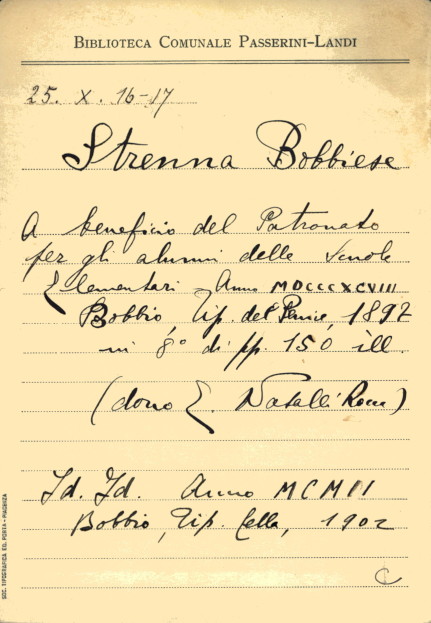 BIBLIOTECA COMUNALE PASSERINI-LANDI
25. X. 16-17
Strenna Bobbiese
A beneficio del Patronato
per gli alunni delle Scuole
Elementari - Anno MDCCCXCVIII
Bobbio, Tip. del Penice, 1897
in 8° di pp. 150 ill.
(dono E. Natalli Rocca)
Id. Id. Anno MCMII
Bobbio, Tip. Cella, 1902
C
SOC. TIPOGRAFICA ED. PORTA - PIACENZA